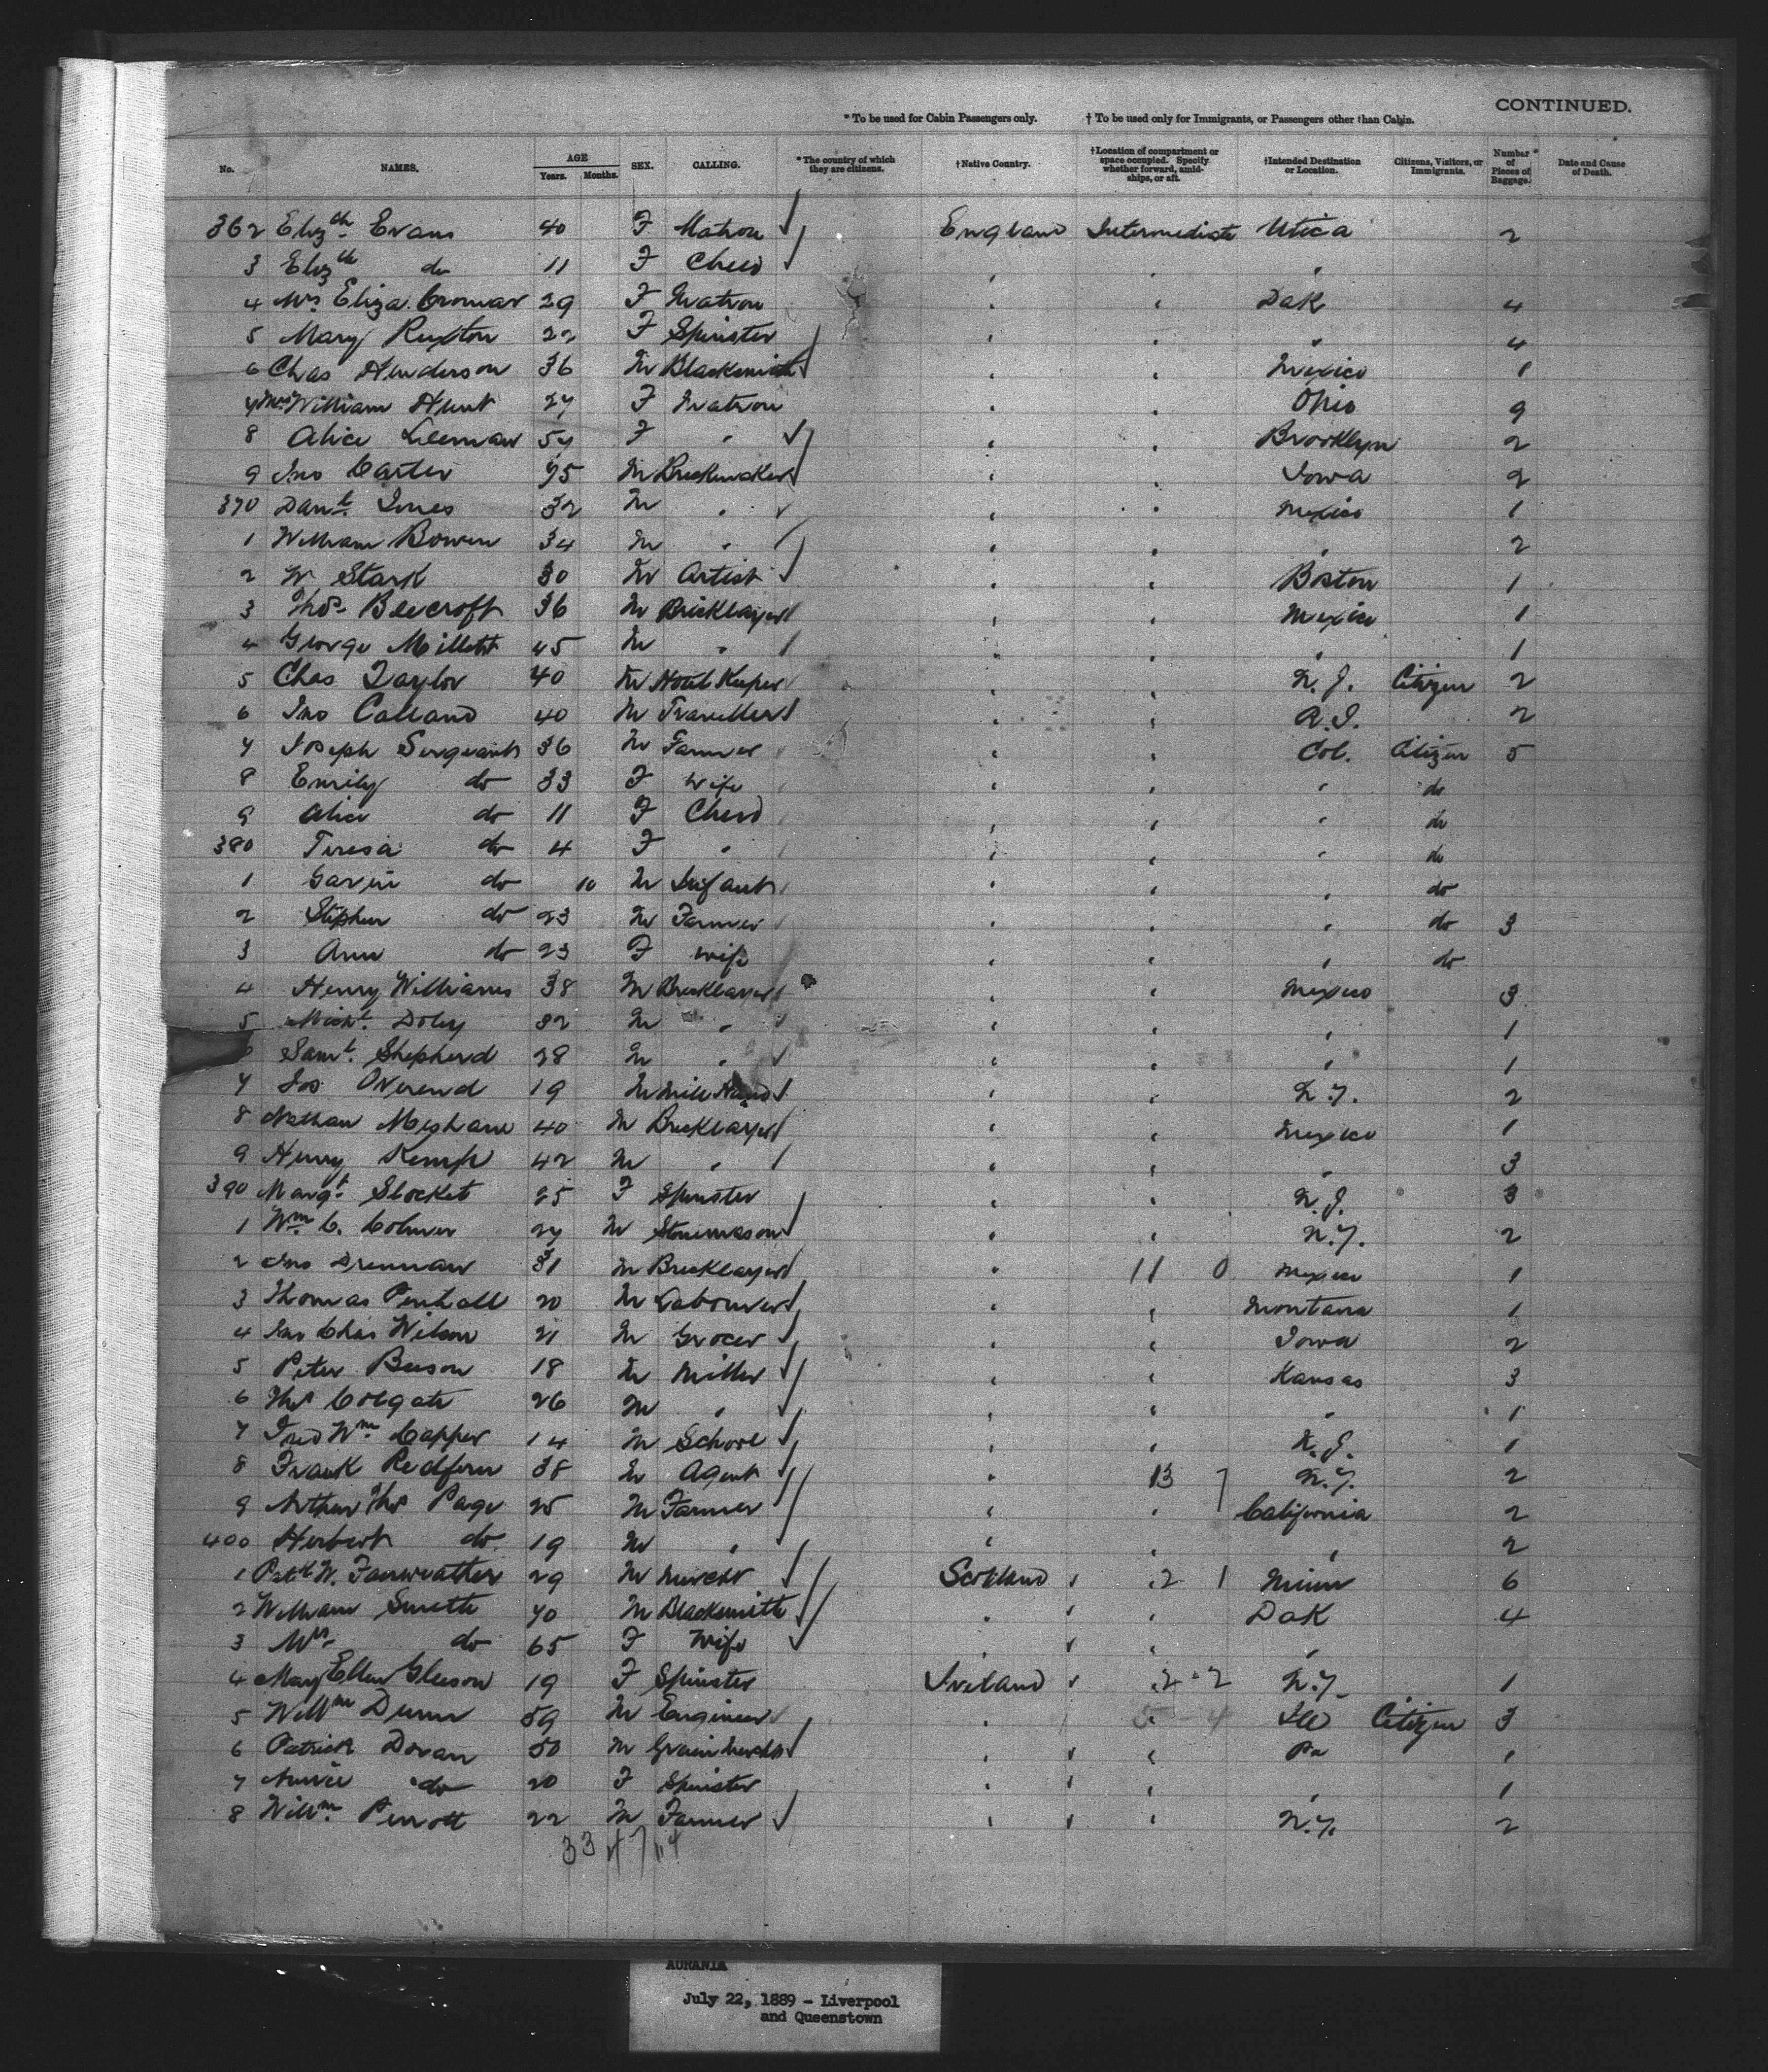 CONTINUED.
* To be used for Cabin Passengers only. † To be used only for Immigrants, or Passengers other than Cabin.
No. NAMES. AGE Years. Months. SEX. CALLING. * The country of which they are citizens. † Native Country. † Location of compartment or space occupied. Specify whether forward, amidships, or aft. † Intended Destination or Location. Citizens, Visitors, or Immigrants. Number of Pieces of Baggage. Date and Cause of Death.
362 Elizth Evans 40 F Matron England Intermediate Utica 2
3 Elizth do 11 F Child
4 Mrs Eliza 29 F Matron Dak 4
5 Mary Ruxton 22 F Spinster " 4
6 Chas Henderson 36 M Blacksmith Mexico 1
7 Mrs William Hunt 27 F Matron Ohio 9
8 Alice Leeman F " Brooklyn 2
9 Jno Carter M Brickmaker Iowa 2
370 Danl Jones 32 M " Mexico 1
1 William Bowen 34 M " " 2
2 W Stark 30 M Artist Boston 1
3 Thos Beecroft 36 M Bricklayer Mexico 1
4 George Millett 45 M " " 1
5 Chas Taylor 40 M Hotel Keeper N.J. Citizen 2
6 Jno Calland 40 M Traveller R.I. 2
7 Joseph Sergeant 36 M Farmer Col. Citizen 5
8 Emily do 33 F Wife " do
9 Alice do 11 F Child " do
380 Teresa do 4 F " " do
1 Gavin do 10 M Infant " do
2 Stephen do 23 M Farmer " do 3
3 Ann do 23 F Wife " do
4 Henry Williams 38 M Bricklayer Mexico 3
5 Michl Doley 32 M " " 1
Saml Shepherd 28 M " " 1
7 Jos Overend 19 M Mill Hand N.Y. 2
8 Nathan 40 M Bricklayer Mexico 1
9 Henry Kemp 42 M " " 3
390 Margt Slocket 25 F Spinster N.J. 3
1 Wm C. Colmer 27 M Stonemason N.Y. 2
2 Jno Drennan 31 M Bricklayer 11 0 Mexico 1
3 Thomas Penhall 20 M Labourer Montana 1
4 Jno Chas Wilson 21 M Grocer Iowa 2
5 Peter Beeson 18 M Miller Kansas 3
6 Thos Colgate 26 M " " 1
7 Fred Wm Capper 14 M School N.J. 1
8 Frank Redfern 38 M Agent 13 7 N.Y. 2
9 Arthur Thos Page 25 M Farmer California 2
400 Herbert do 19 M " " 2
1 W. Fairweather 29 M Mercht Scotland 2 1 Minn 6
2 William Smith 70 M Blacksmith " Dak 4
3 Mrs do 65 F Wife " "
4 Mary Ellen Gleeson 19 F Spinster Ireland 2-2 N.Y. 1
5 Willm Dunn 59 M Engineer " 5-4 Ill Citizen 3
6 Patrick Doran 50 M Grain Mercht " Pa 1
7 Annie do 20 F Spinster " " 1
8 Willm Perrott 22 M Farmer " N.Y. 2
AURANIA
July 22, 1889 - Liverpool
and Queenstown